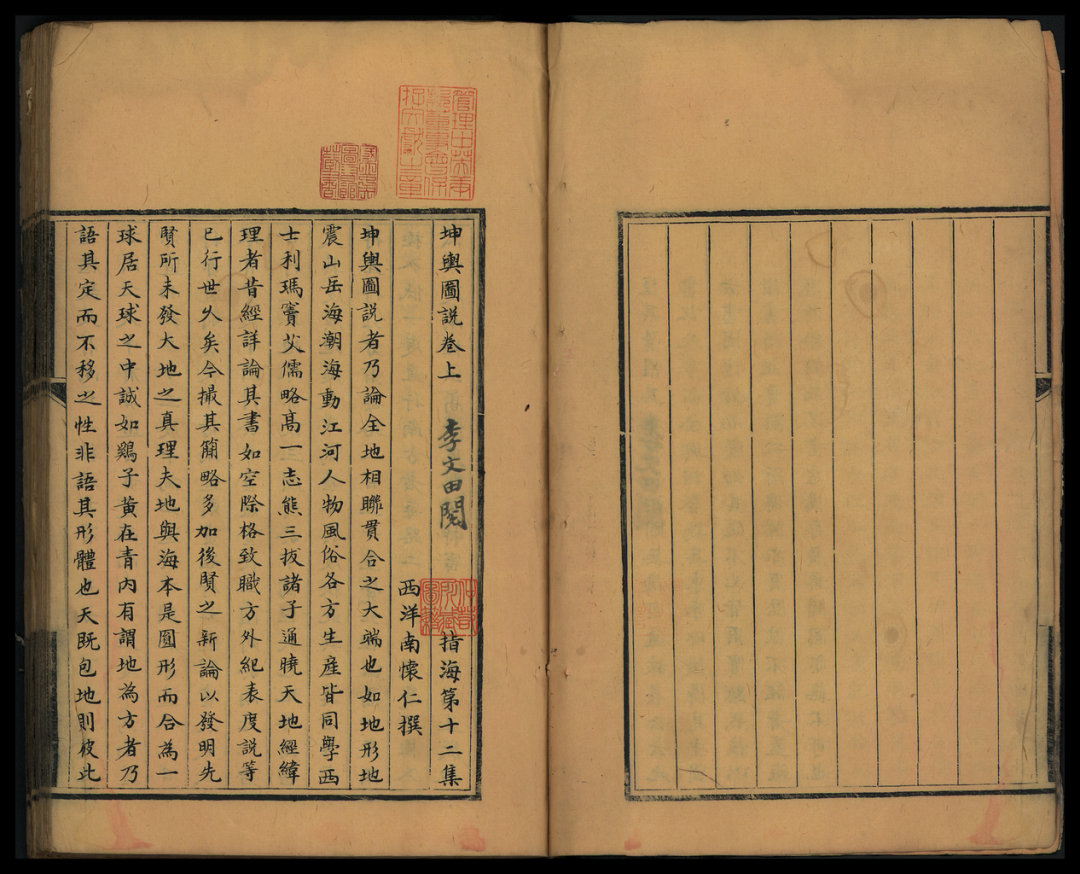 坤輿圖說卷上
李文田閱
指海第十二集
西洋南懷仁撰
坤輿圖說者乃論全地相聯貫合之大端也如地形地
震山岳海潮海動江河人物風俗各方生產皆同學西
士利瑪竇艾儒略高一志熊三拔諸子通曉天地經緯
理者昔經詳論其書如空際格致職方外紀表度說等
已行世久矣今撮其簡略多加後賢之新論以發明先
賢所未發大地之真理夫地與海本是圓形而合為一
球居天球之中誠如鷄子黃在青內有謂地為方者乃
語其定而不移之性非語其形體也天既包地則彼此
管理中英庚
款董事會保
存文獻之章